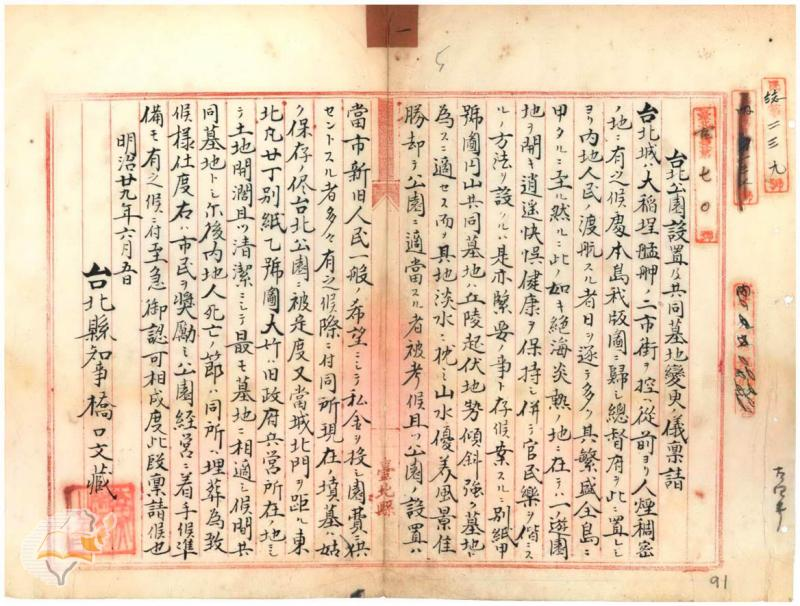 台北公園設置及共同墓地變更ノ儀稟請
台北城ハ大稻埕艋舺ノ二市街ヲ控ヘ從前ヨリ人煙稠密
ノ地ニ有之候處本島我版圖ニ歸シ總督府ヲ此ニ置レシ
ヨリ内地人民渡航スル者日ヲ逐テ多ク其繁盛全島ニ
甲タルニ至ル然ルニ此ノ如キ絶海炎熱ノ地ニ在テハ一遊園
地ヲ開キ逍遥快悞健康ヲ保持シ併テ官民樂ヲ偕ニス
ルノ方法ヲ設クルハ是亦緊要ノ事ト存候案スルニ別紙甲
號圖円山共同墓地ハ丘陵起伏地勢傾斜強ク墓地ト
為スニ適セス而テ其地淡水ニ枕ミ山水優美風景佳
勝却テ公園ニ適當スル者被考候且ツ公園ノ設置ハ
當市新旧人民一般ノ希望ニシテ私金ヲ投シ園費ニ供
セントスル者多々有之候際ニ付同所現在ノ墳墓ハ姑
ク保存ノ侭台北公園ニ被定度又當城北門ヲ距ル東
北凡廿丁別紙乙號圖大竹ハ旧政府兵營所在ノ地ニシ
テ土地開濶且ツ清潔ニシテ最モ墓地ニ相適シ候間共
同墓地トシ尓後内地人死亡ノ節ハ同所ヘ埋葬為致
候様仕度右ハ市民ヲ奬勵シ公園經営ニ着手候準
備モ有之候ニ付至急御認可相成度此段稟請候也
明治廿九年六月五日
台北縣知事橋口文藏
臺北縣
七〇
總二三九
91